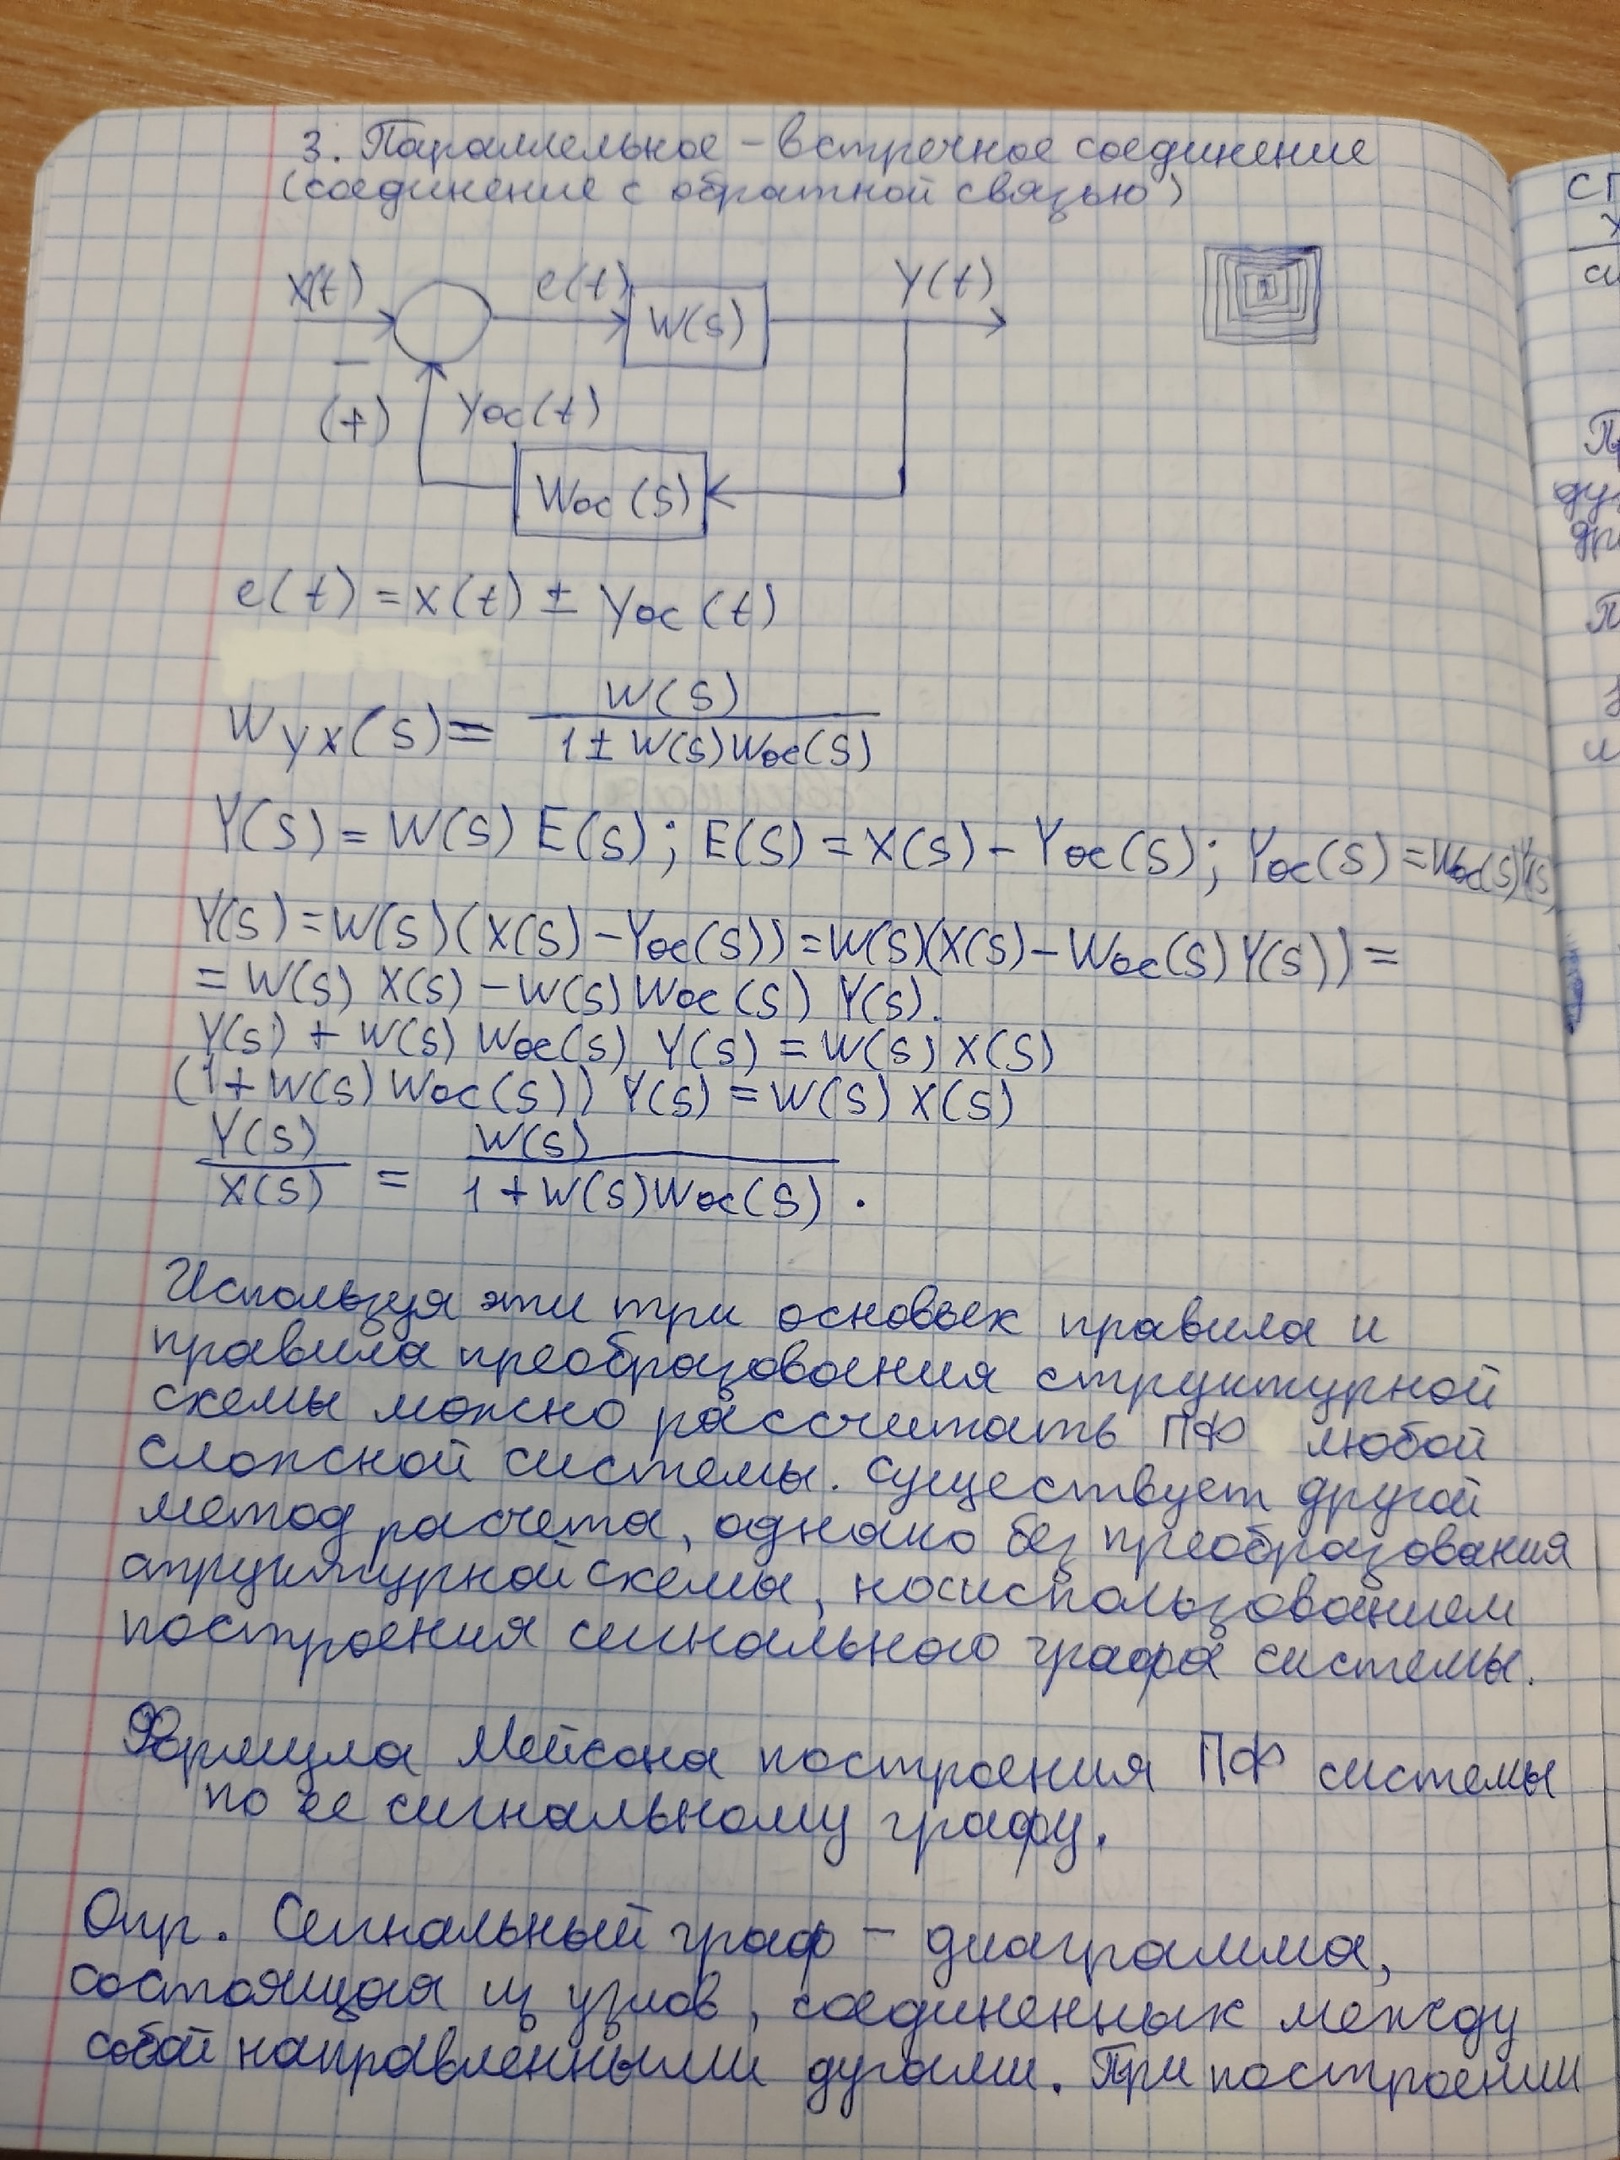 3. Параллельное – встречное соединение
(соединение с обратной связью)
X(t) e(t) W(s) Y(t)
–
(+) Yос(t)
Wос(s)
e(t) = x(t) ± Yос(t)
Wyx(s) = W(s) / 1 ± W(s)Wос(s)
Y(s) = W(s) E(s); E(s) = X(s) – Yос(s); Yос(s) = Wос(s)Y(s)
Y(s) = W(s)(X(s) – Yос(s)) = W(s)(X(s) – Wос(s)Y(s)) =
= W(s) X(s) – W(s)Wос(s) Y(s).
Y(s) + W(s) Wос(s) Y(s) = W(s) X(s)
(1 + W(s) Wос(s)) Y(s) = W(s) X(s)
Y(s) / X(s) = W(s) / 1 + W(s)Wос(s) .
Используя эти три основых правила и
правила преобразования структурной
схемы можно рассчитать ПФ любой
сложной системы. Существует другой
метод расчета, однако без преобразования
структурной схемы, но с использованием
построения сигнального графа системы.
Формула Мейсона построения ПФ системы
по ее сигнальному графу.
Опр. Сигнальный граф – диаграмма,
состоящая из узлов, соединенных между
собой направленными дугами. При построении